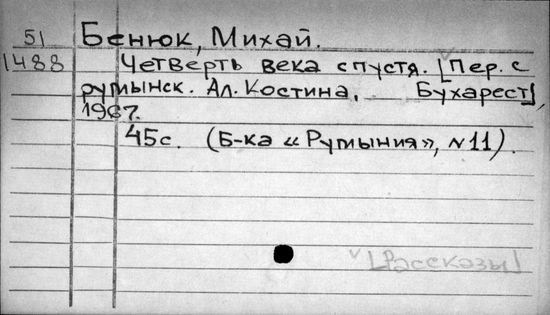 51 Бенюк, Михай.
1488 Четверть века спустя. [Пер. с
румынск. Ал. Костина. Бухарест],
1967.
45с. (Б-ка «Румыния», №11).
[Рассказы]